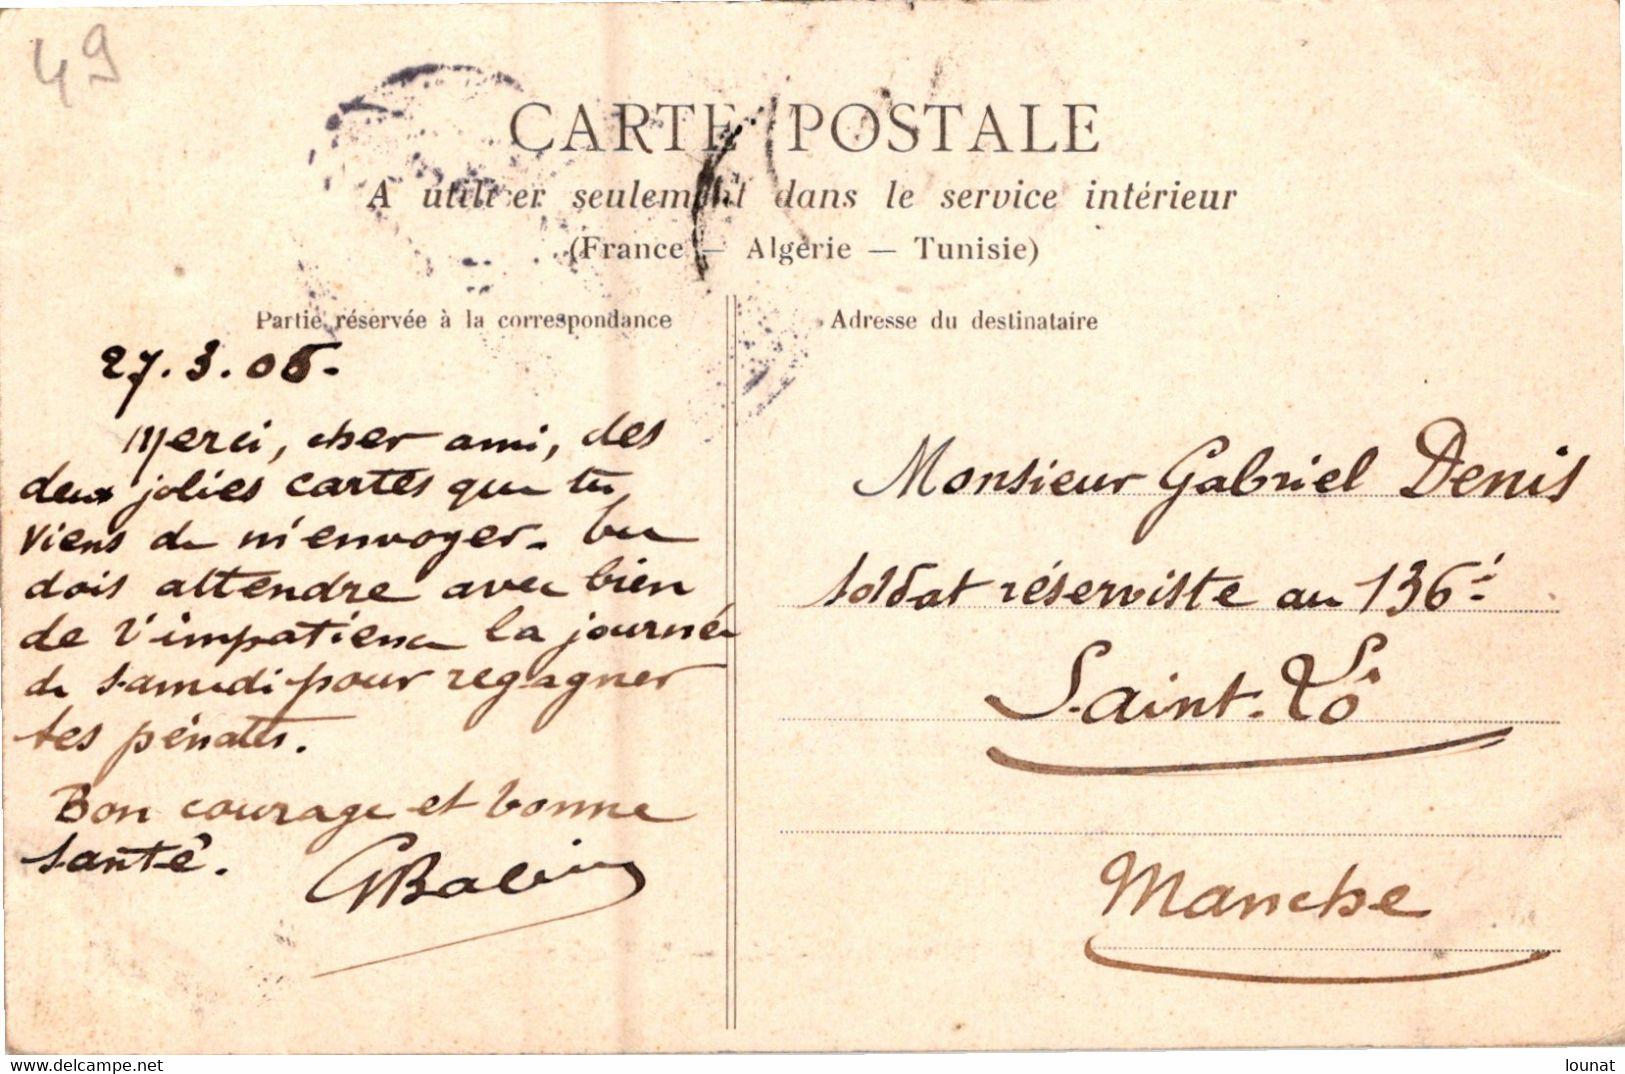 49
CARTE POSTALE
A utiliser seulement dans le service intérieur
(France — Algérie — Tunisie)
Partie réservée à la correspondance
27.3.06.
Merci, cher ami, des
deux jolies cartes que tu
viens de m'envoyer. Tu
dois attendre avec bien
de l'impatience la journée
de samedi pour regagner
tes pénates.
Bon courage et bonne
santé.
Adresse du destinataire
Monsieur Gabriel Denis
soldat réserviste au 136è
Saint-Lô
Manche
lounat